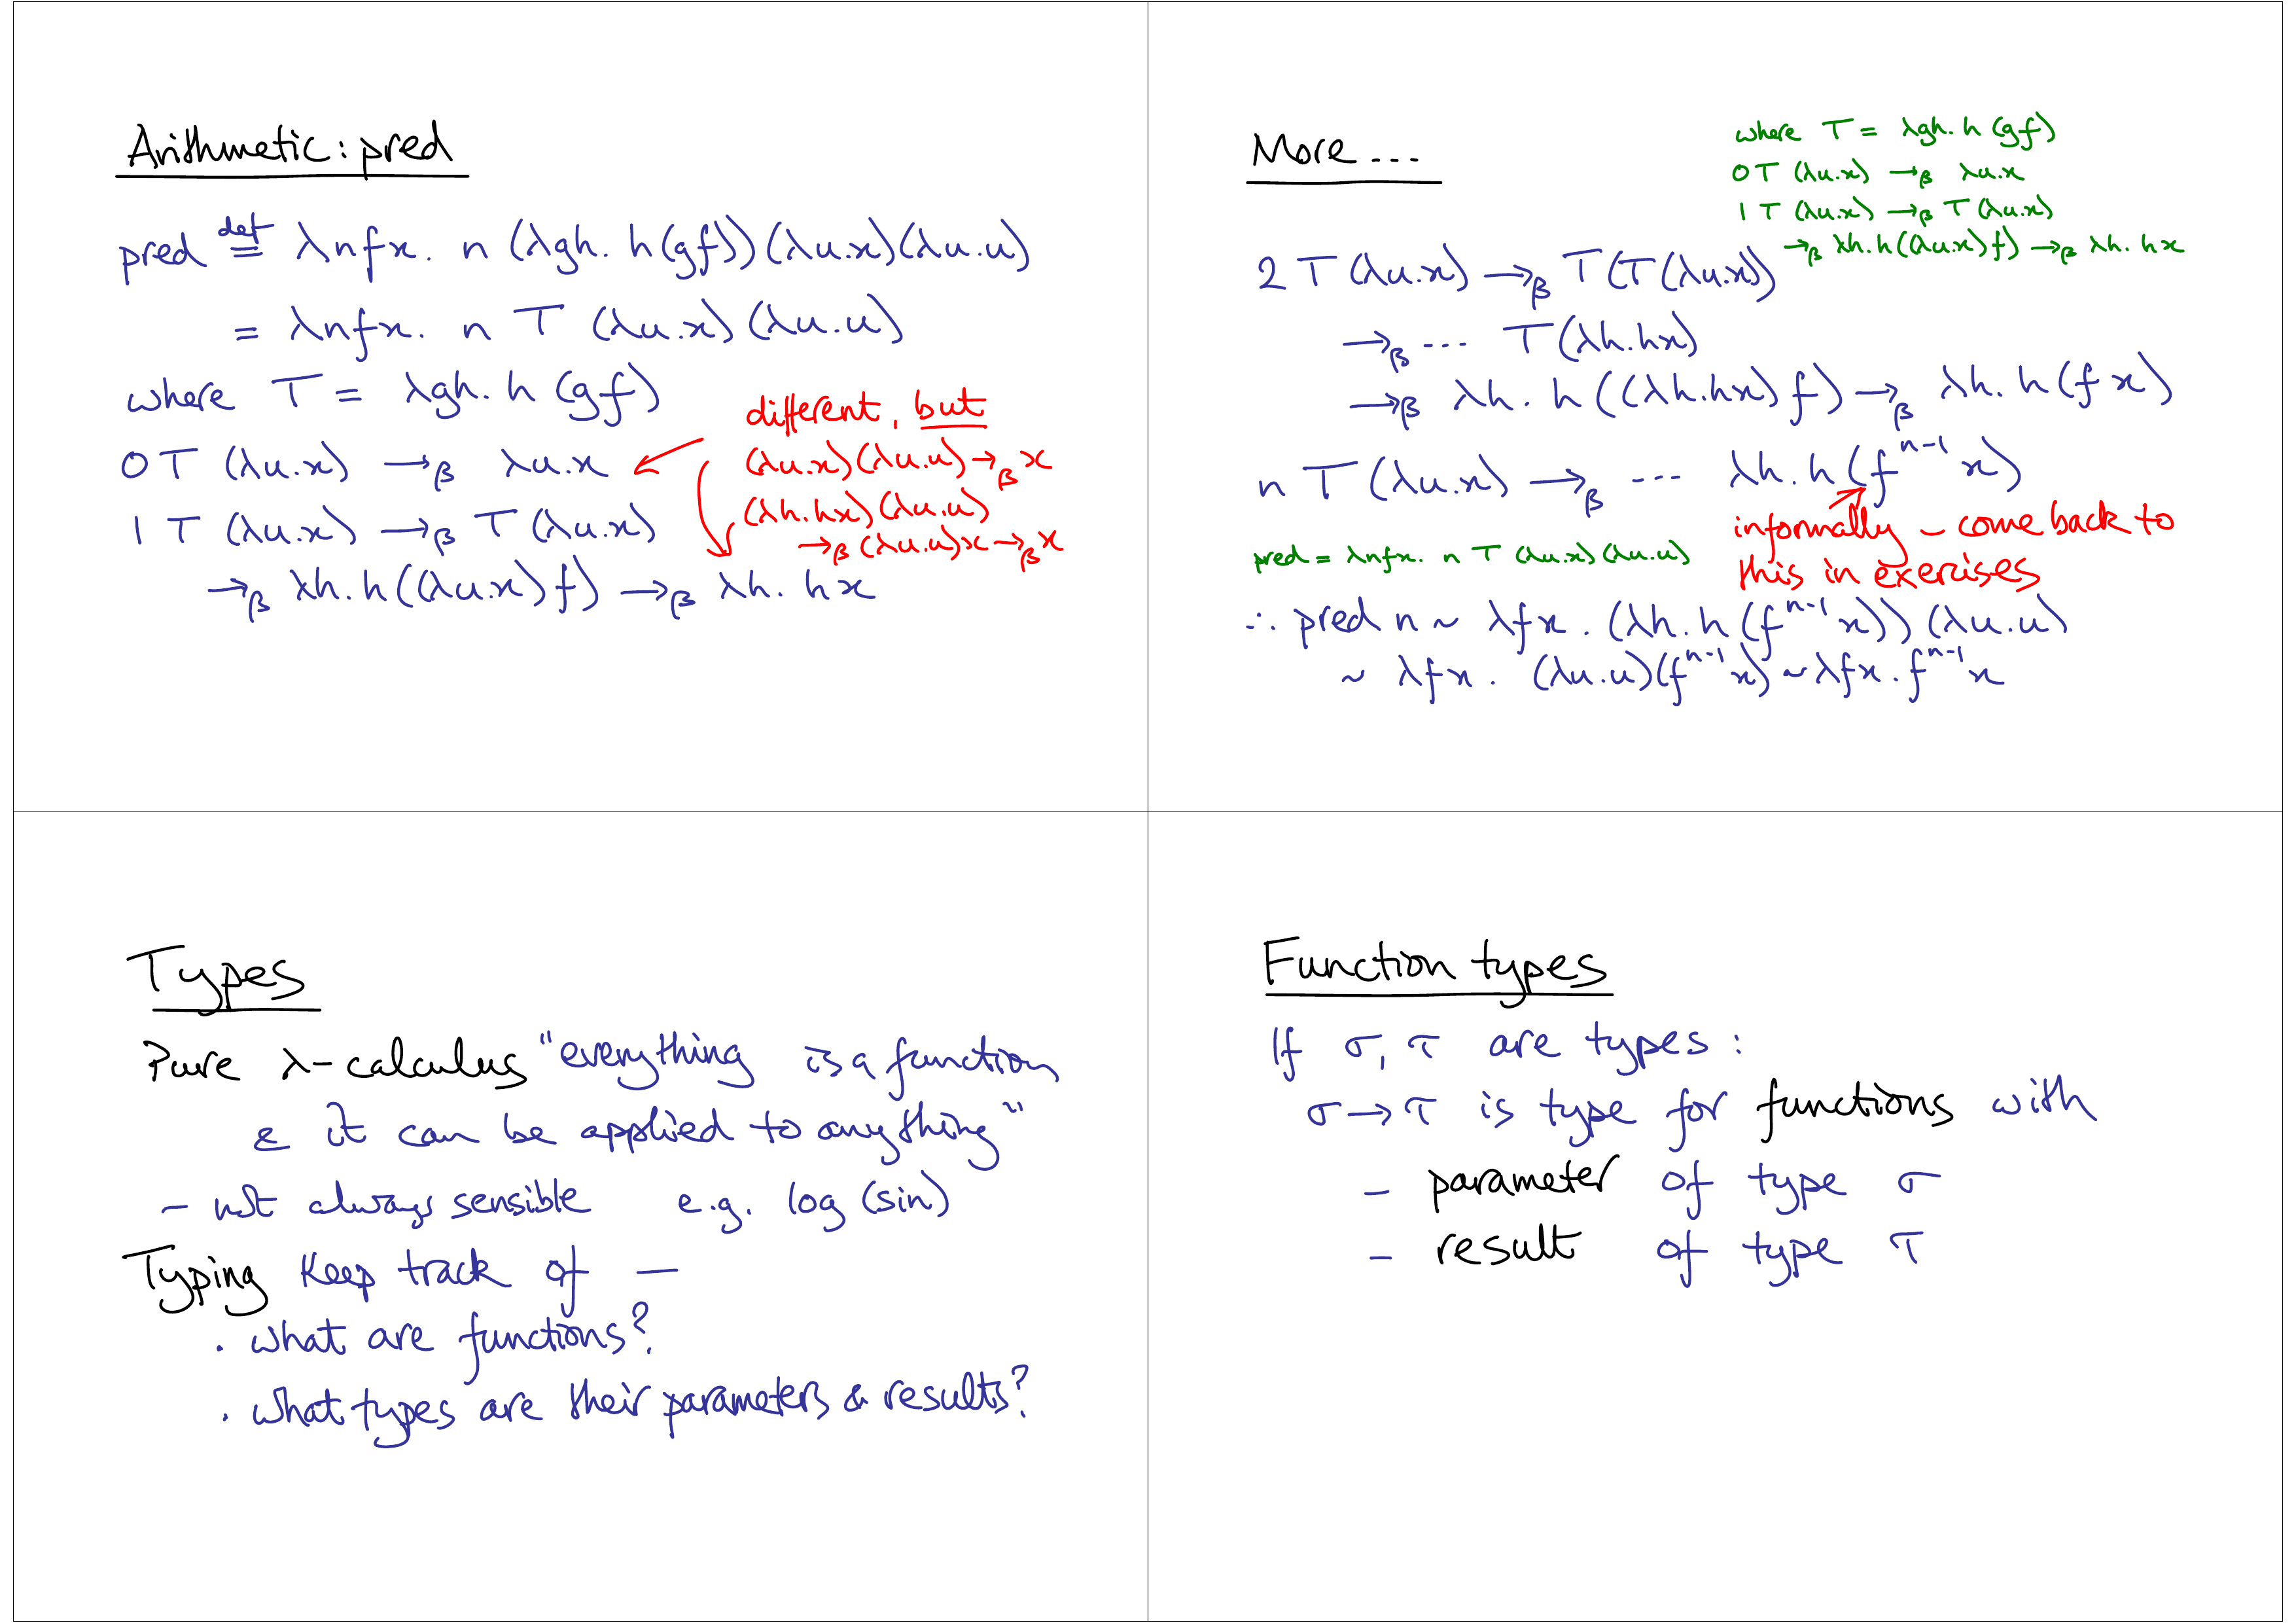 Arithmetic: pred
pred def= λnfx. n (λgh. h(gf))(λu.x)(λu.u)
= λnfx. n T (λu.x)(λu.u)
where T = λgh. h (gf)
0 T (λu.x) →β λu.x
1 T (λu.x) →β T (λu.x)
→β λh.h((λu.x)f) →β λh. hx
different, but
(λu.x)(λu.u) →β x
(λh.hx)(λu.u)
→β (λu.u)x →β x
More ...
where T = λgh. h (gf)
0 T (λu.x) →β λu.x
1 T (λu.x) →β T(λu.x)
→β λh.h((λu.x)f) →β λh. hx
2 T (λu.x) →β T(T(λu.x))
→β ... T(λh.hx)
→β λh. h((λh.hx) f) →β λh. h(f x)
n T (λu.x) →β ... λh.h (fⁿ⁻¹ x)
informally – come back to
this in exercises
pred = λnfx. n T (λu.x)(λu.u)
∴ pred n ~ λfx. (λh.h (fⁿ⁻¹x)) (λu.u)
~ λfx. (λu.u)(fⁿ⁻¹x) ~ λfx. fⁿ⁻¹x
Types
Pure λ-calculus "everything is a function
& it can be applied to anything"
– not always sensible e.g. log (sin)
Typing Keep track of —
. what are functions?
. what types are their parameters & results?
Function types
If σ, τ are types :
σ → τ is type for functions with
– parameter of type σ
– result of type τ